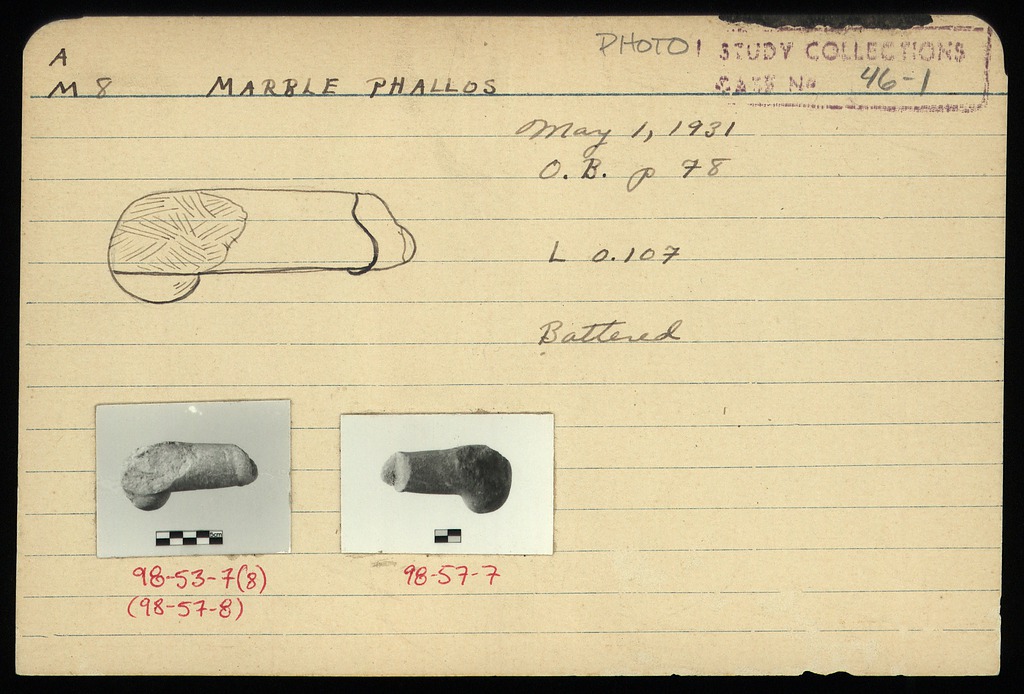 A
M 8 MARBLE PHALLOS
PHOTO!
STUDY COLLECTIONS
CASE No 46-1
May 1, 1931
O.B. p 78
L 0.107
Battered
5cm
98-53-7(8)
(98-57-8)
98-57-7